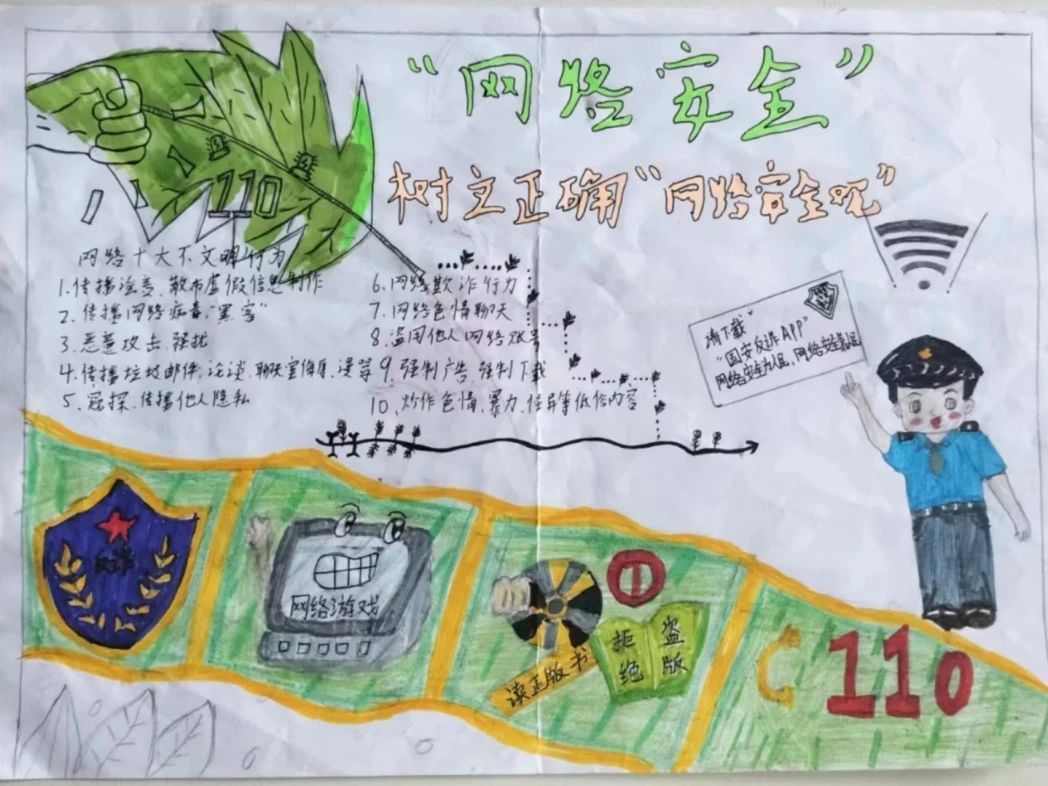 “网络安全”
树立正确“网络安全观”
110
网络十大不文明行为
1.传播谣言、散布虚假信息制作
2.传播网络病毒“黑客”
3.恶意攻击、骚扰
4.传播垃圾邮件;论谈、聊天室侮辱、漫骂
5、窥探、传播他人隐私
6.网络欺诈行为
7.网络色情聊天
8、盗用他人网络账号
9、强制广告、强制下载
10、炒作色情、暴力、怪异等低俗内容
请下载“
“国安反诈APP”
网络安全为人民,网络安全靠人民
反诈
网络游戏
读正版书
拒绝
盗版
110